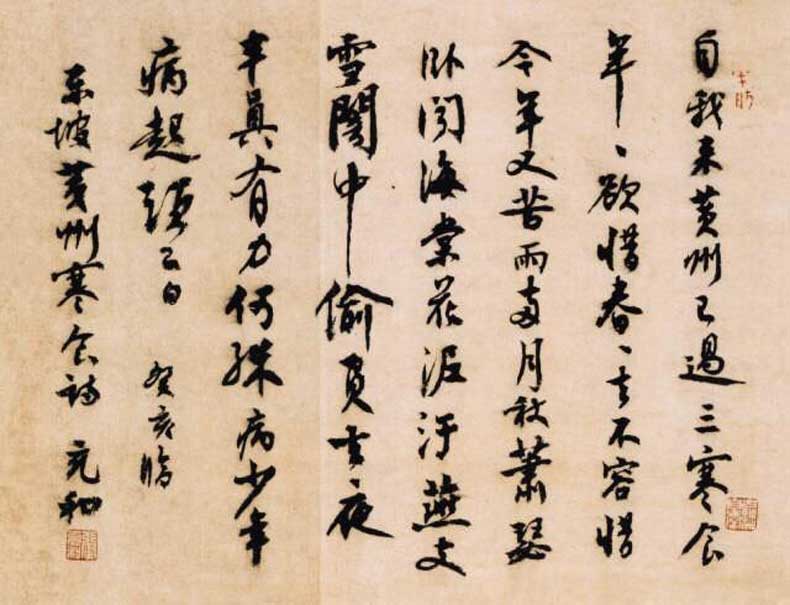 自我来黄州已過三寒食
年〻欲惜春〻去不容惜
今年又苦雨两月秋蕭瑟
卧闻海棠花泥汙燕支
雪闇中偷負去夜
半真有力何殊病少年
病起頭已白 癸亥臨
東坡黄州寒食詩 充和